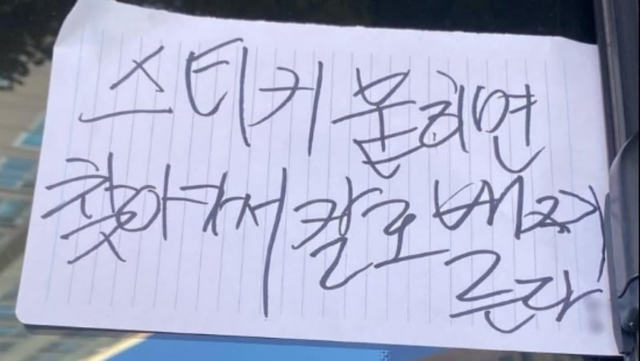 스티커 붙히면
찾아가서 칼로 배 찌
른다